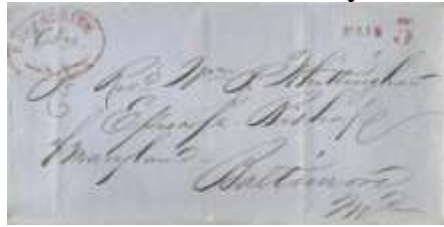 PAID 5
Revd Wm R Whittingham
Bishop
Maryland
Baltimore
Md